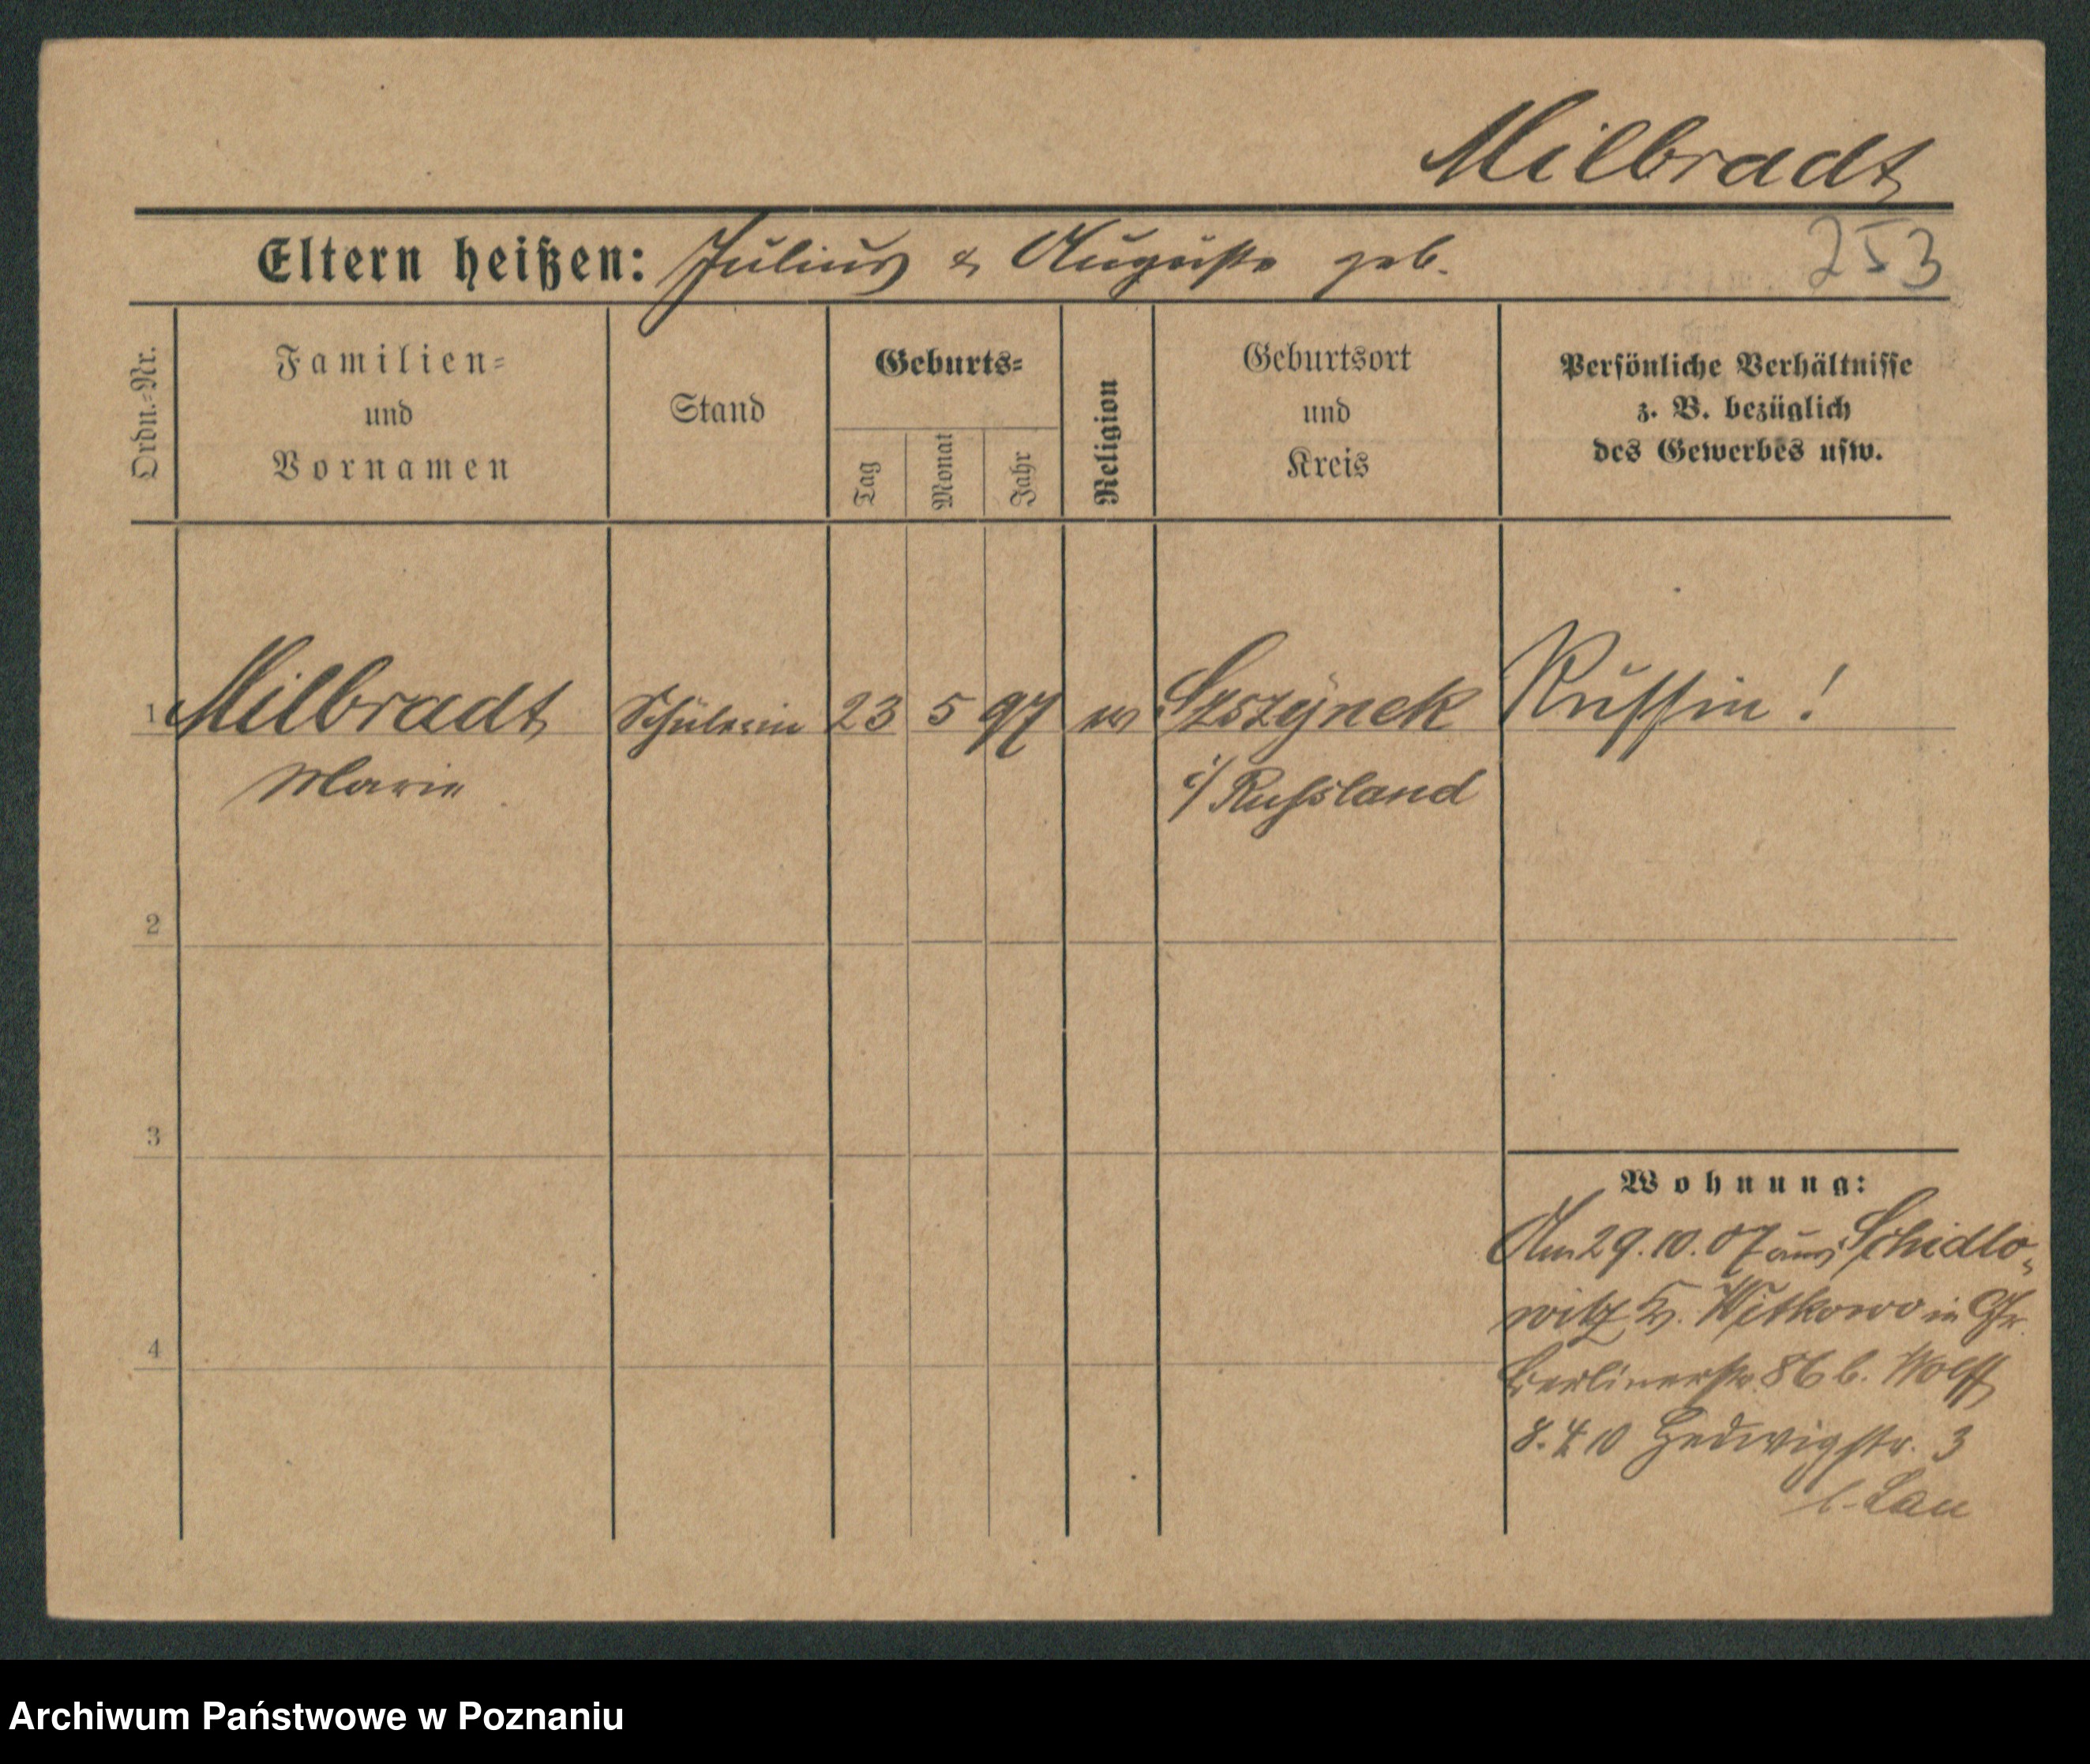 Milbradt
Eltern heißen: Julius & Auguste geb.
253
Ordn.-Nr.
Familien-
und
Vornamen
Stand
Geburts-
Tag
Monat
Jahr
Religion
Geburtsort
und
Kreis
Persönliche Verhältnisse
z. B. bezüglich
des Gewerbes usw.
1 Milbradt Schülerin 23 5 97 Szszynek Russin!
Marie i/ Russland
2
3
Wohnung:
Am 29.10.07 aus Schidlo-
witz K. Witkowo in Gr.
4
Berlinerstr. 86 b. Wolff
8.4.10 Hedwigstr. 3
b. Lau
Archiwum Państwowe w Poznaniu